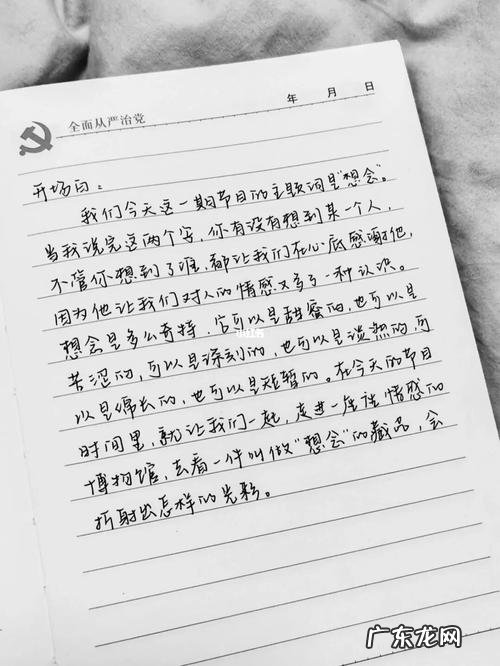 年 月 日
全面从严治党
开场白:
我们今天这一期节目的主题词是"想念"。
当我说完这两个字,你有没有想到某一个人,
不管你想到了谁,都让我们在心底感谢他,
因为他让我们对人的情感又多了一种认识。
想念是多么奇特,它可以是甜蜜的,也可以是
苦涩的,可以是深刻的,也可以是淡然的,可
以是绵长的,也可以是短暂的。在今天的节目
时间里,就让我们一起,走进一座座情感的
博物馆,去看一件叫做"想念"的藏品,会
折射出怎样的光彩。
小红书
广东龙网